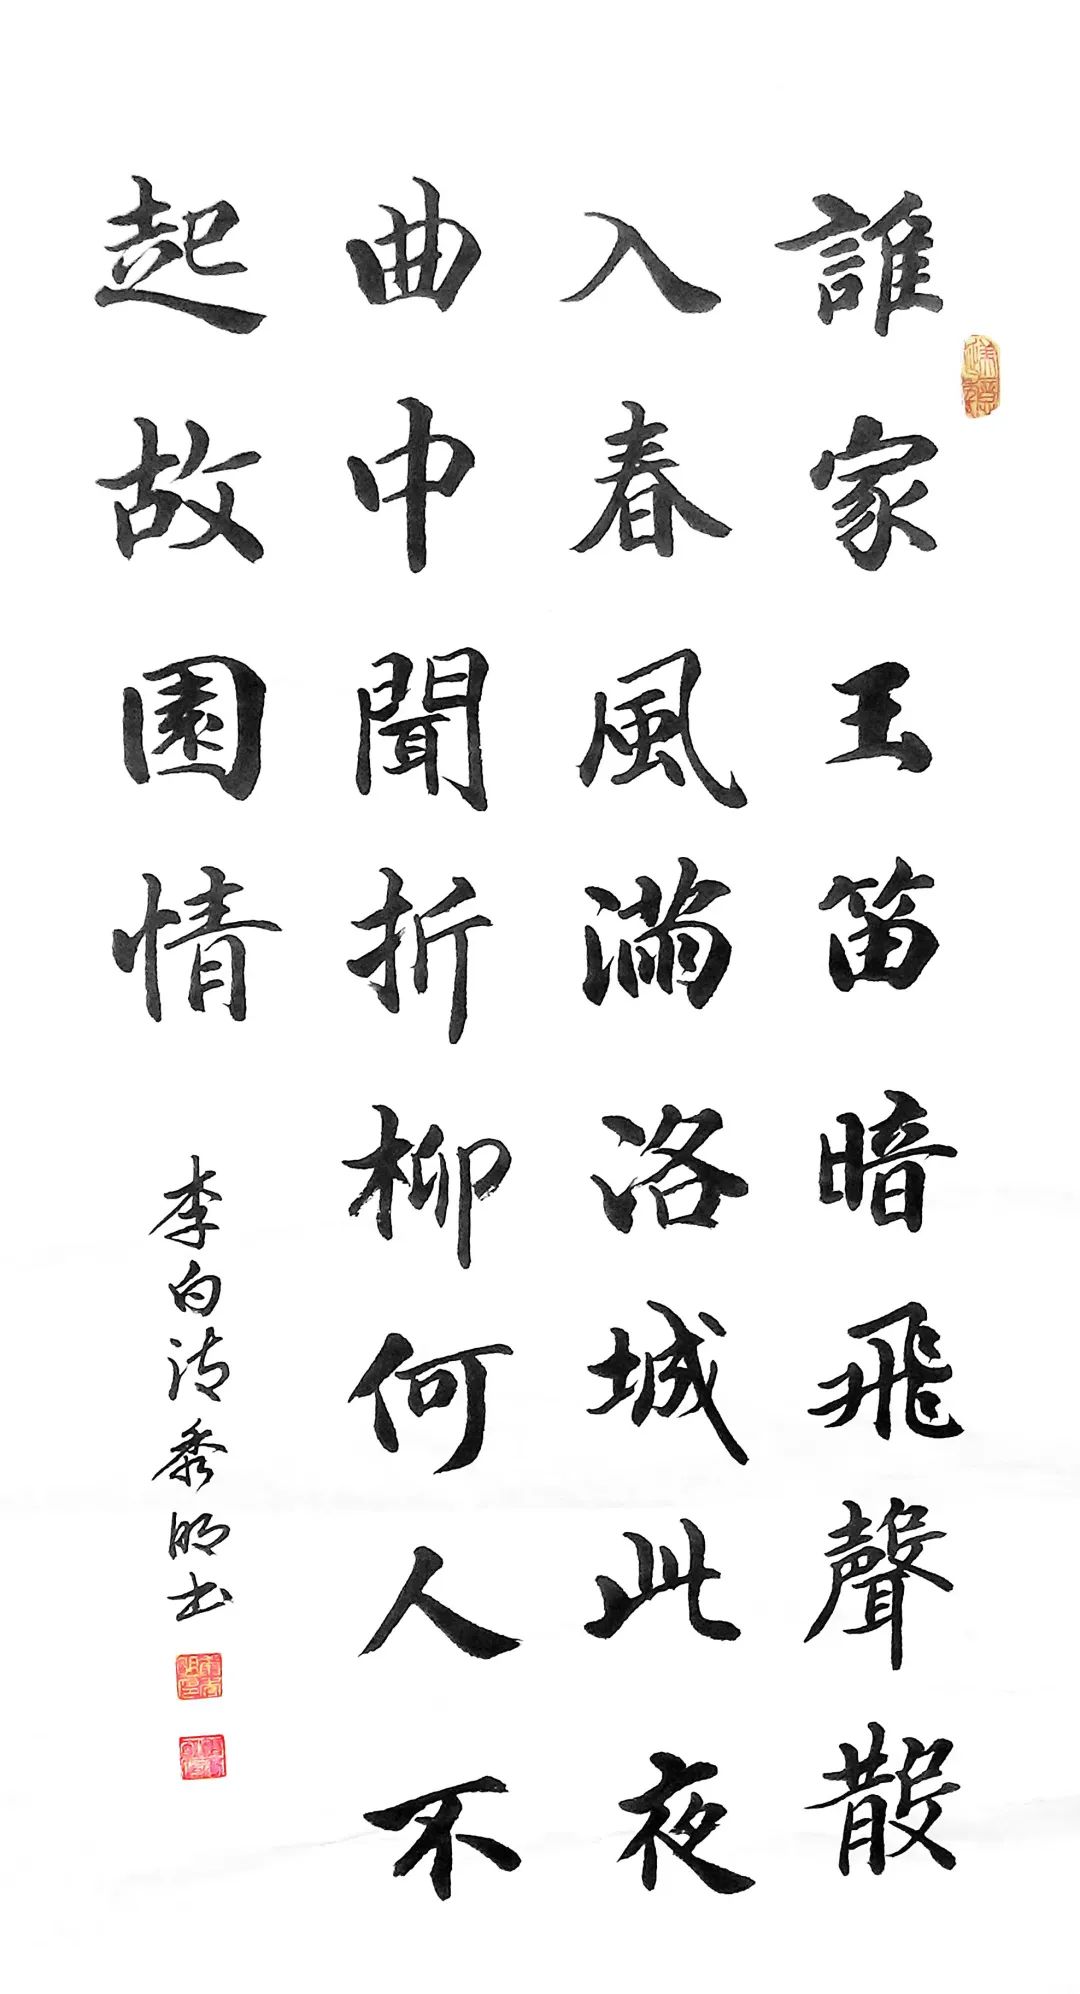 誰家玉笛暗飛聲散
入春風滿洛城此夜
曲中聞折柳何人不
起故園情
李白诗明书